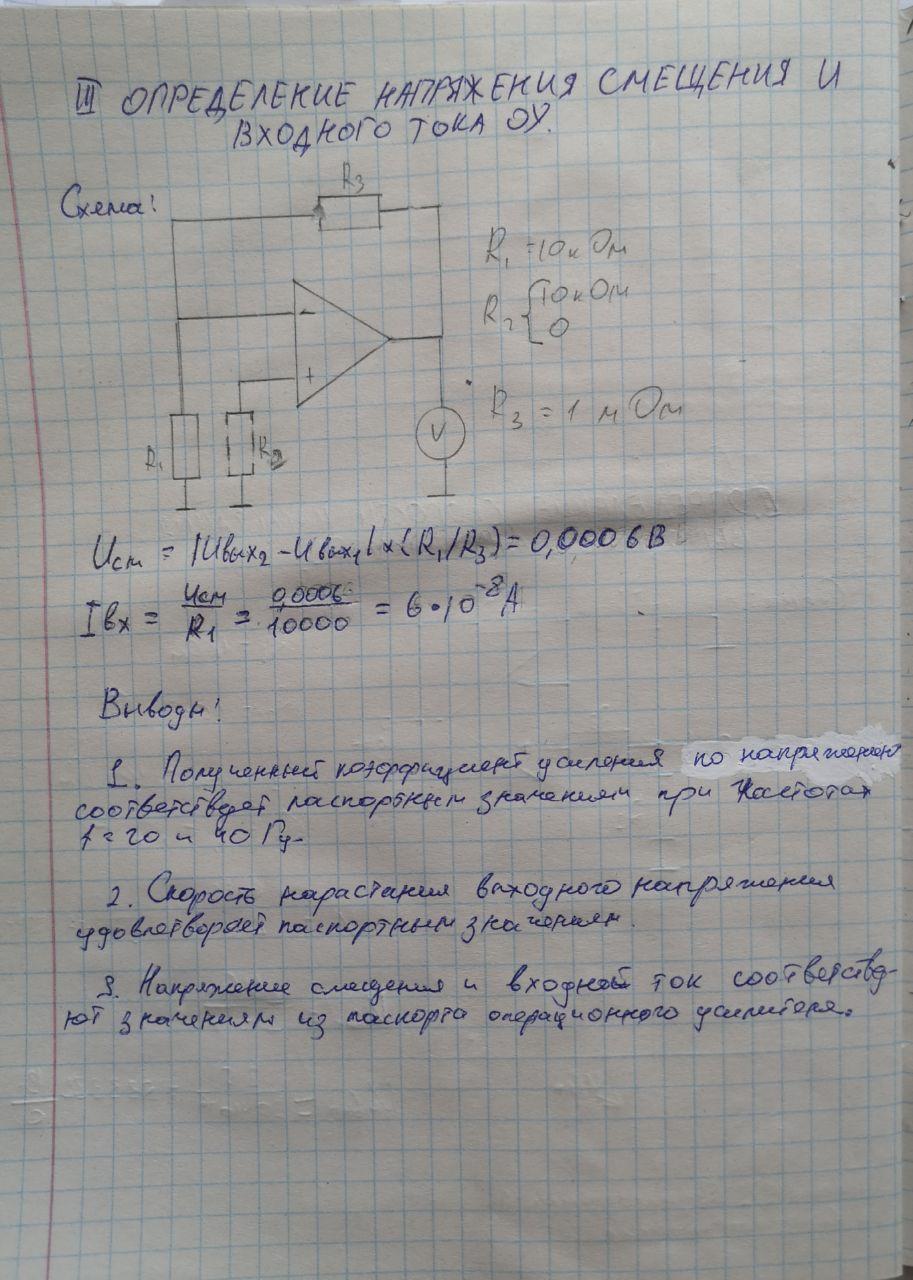 III ОПРЕДЕЛЕНИЕ НАПРЯЖЕНИЯ СМЕЩЕНИЯ И
ВХОДНОГО ТОКА ОУ.
Схема:
R3
R1 = 10к Ом
R2 { 10к Ом
0
R3 = 1 м Ом
-
+
V
R1
R2
Uсм = |Uвых2 - Uвых1| × (R1/R3) = 0,0006 В
Iвх = Uсм/R1 = 0,0006/10000 = 6·10⁻⁸ А
Выводы:
1. Полученный коэффициент усиления по напряжению
соответствует паспортным значениям при частотах
f = 20 и 40 Гц.
2. Скорость нарастания выходного напряжения
удовлетворяет паспортным значениям.
3. Напряжение смещения и входной ток соответству-
ют значениям из паспорта операционного усилителя.